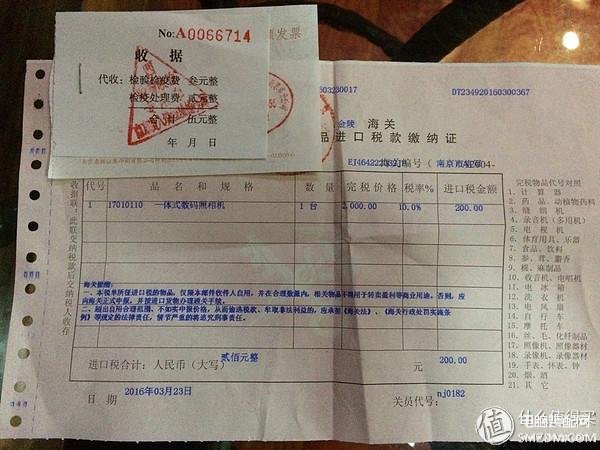 No:A0066714
收 据
代收：检验检疫费 叁元整
检疫处理费 贰元整
合计 伍元整
年 月 日
发票
503230017
DT234920160300367
金陵 海关
品进口税款缴纳证
南京市
代号 品名和规格 数量 完税价格 税率% 进口税金额
1 17010110 一体式数码照相机 1 台 2,000.00 10.0% 200.00
海关提醒：
一、本税单所征进口税的物品，仅限本邮件收件人自用，并在合理数量内，相关物品不得用于转卖盈利等商业用途。否则，应
向海关正式申报，并按进口货物办理通关手续。
二、超出自用合理范围、不如实申报价格，从而偷逃税款、牟取非法利益的，应承担《海关法》、《海关行政处罚实施条
例》等规定的法律责任，情节严重的将追究刑事责任。
进口税合计：人民币（大写） 贰佰元整 元 200.00
日期 2016年03月23日 关员代号： nj0182
收据联：此联交纳税款后交纳税人收存
完税物品代号对照
1. 计算器
2. 药品、动植物药料
3. 缝纫机
4. 录音机（多用机）
5. 电视机
6. 体育用具、乐器
7. 食品、饮料
8. 参、茸、麝香
9. 棉、麻制品
10. 收音机、电唱机
11. 电冰箱
12. 洗衣机
13. 电风扇
14. 自行车
15. 摩托车
16. 丝、毛、化纤制品
17. 照像机、照像器材
18. 录像机、录像器材
19. 手表、怀表、钟
20. 烟、酒
21. 其它
值 什么值得买
电脑装配网
SMZDM.COM